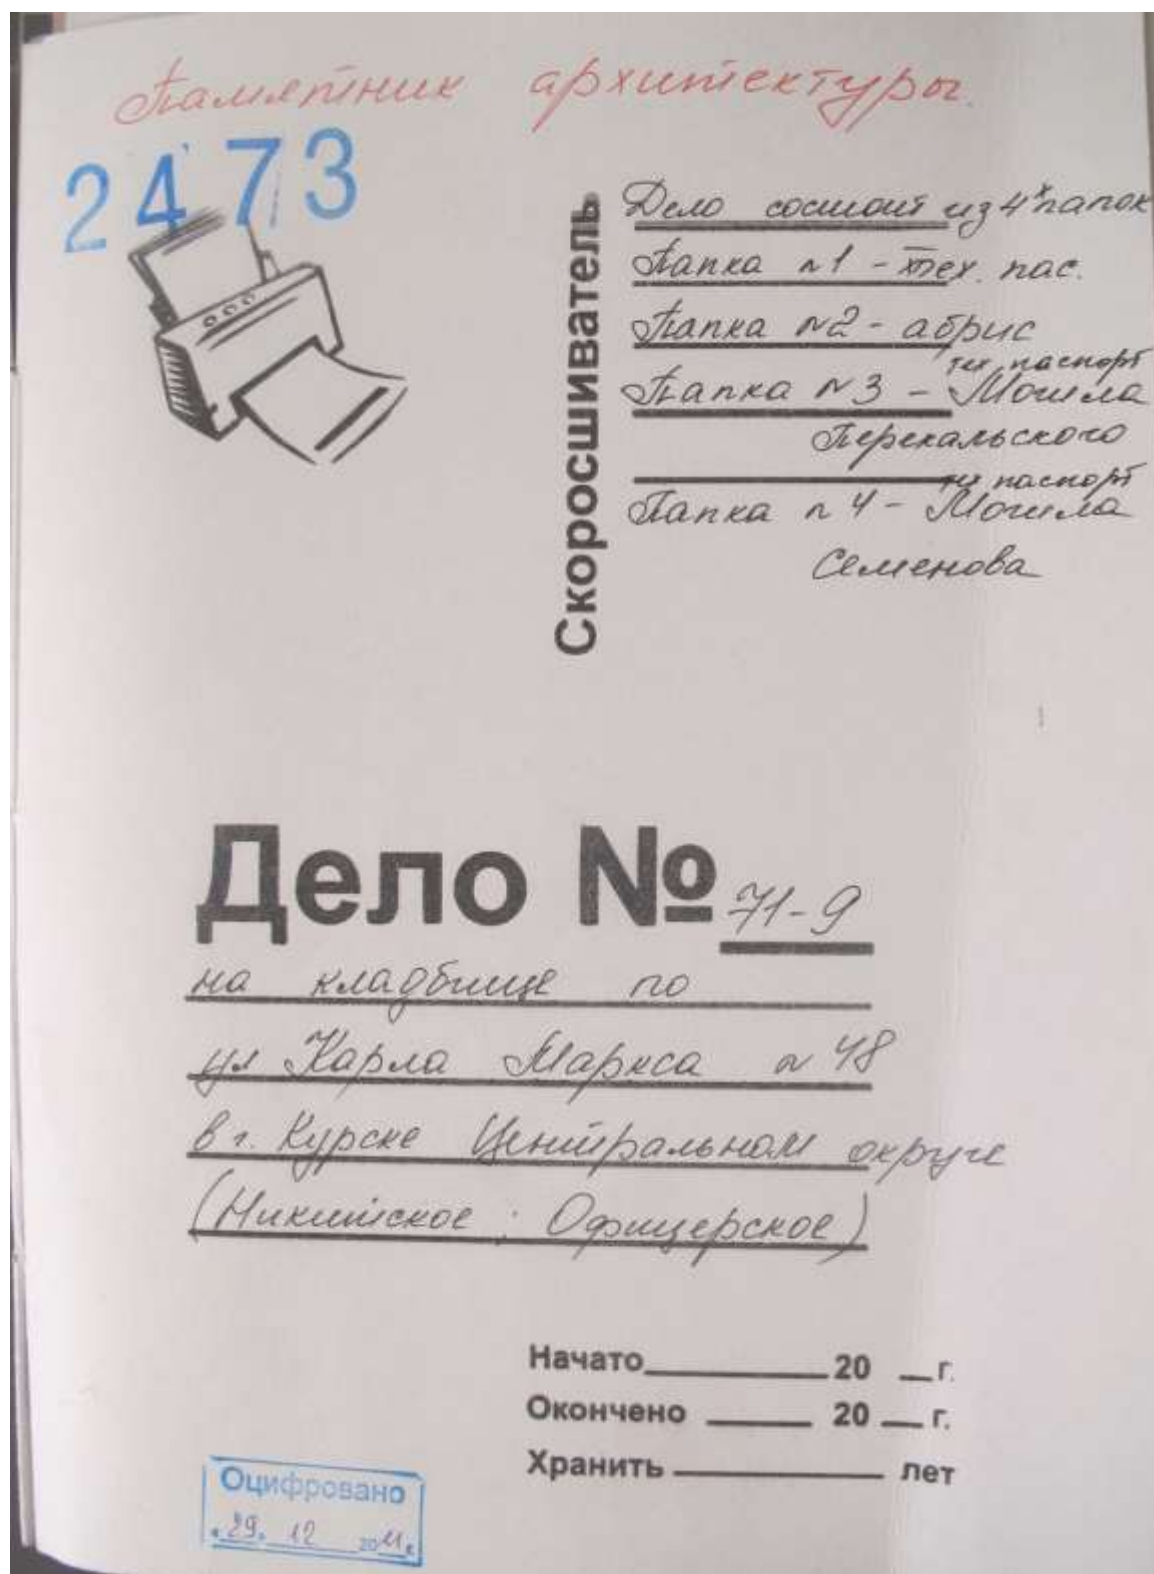 Памятник архитектуры.
2473
Скоросшиватель
Дело состоит из 4х папок
Папка №1 - тех. пас.
Папка №2 - абрис
тех паспорт
Папка №3 - Могила
Перекальского
тех паспорт
Папка №4 - Могила
Семенова
Дело № 71-9
на кладбище по
ул Карла Маркса № 48
в г. Курске Центральном округе
(Никитское ; Офицерское)
Начато 20 г.
Окончено 20 г.
Хранить лет
Оцифровано
"29" 12 2011г.